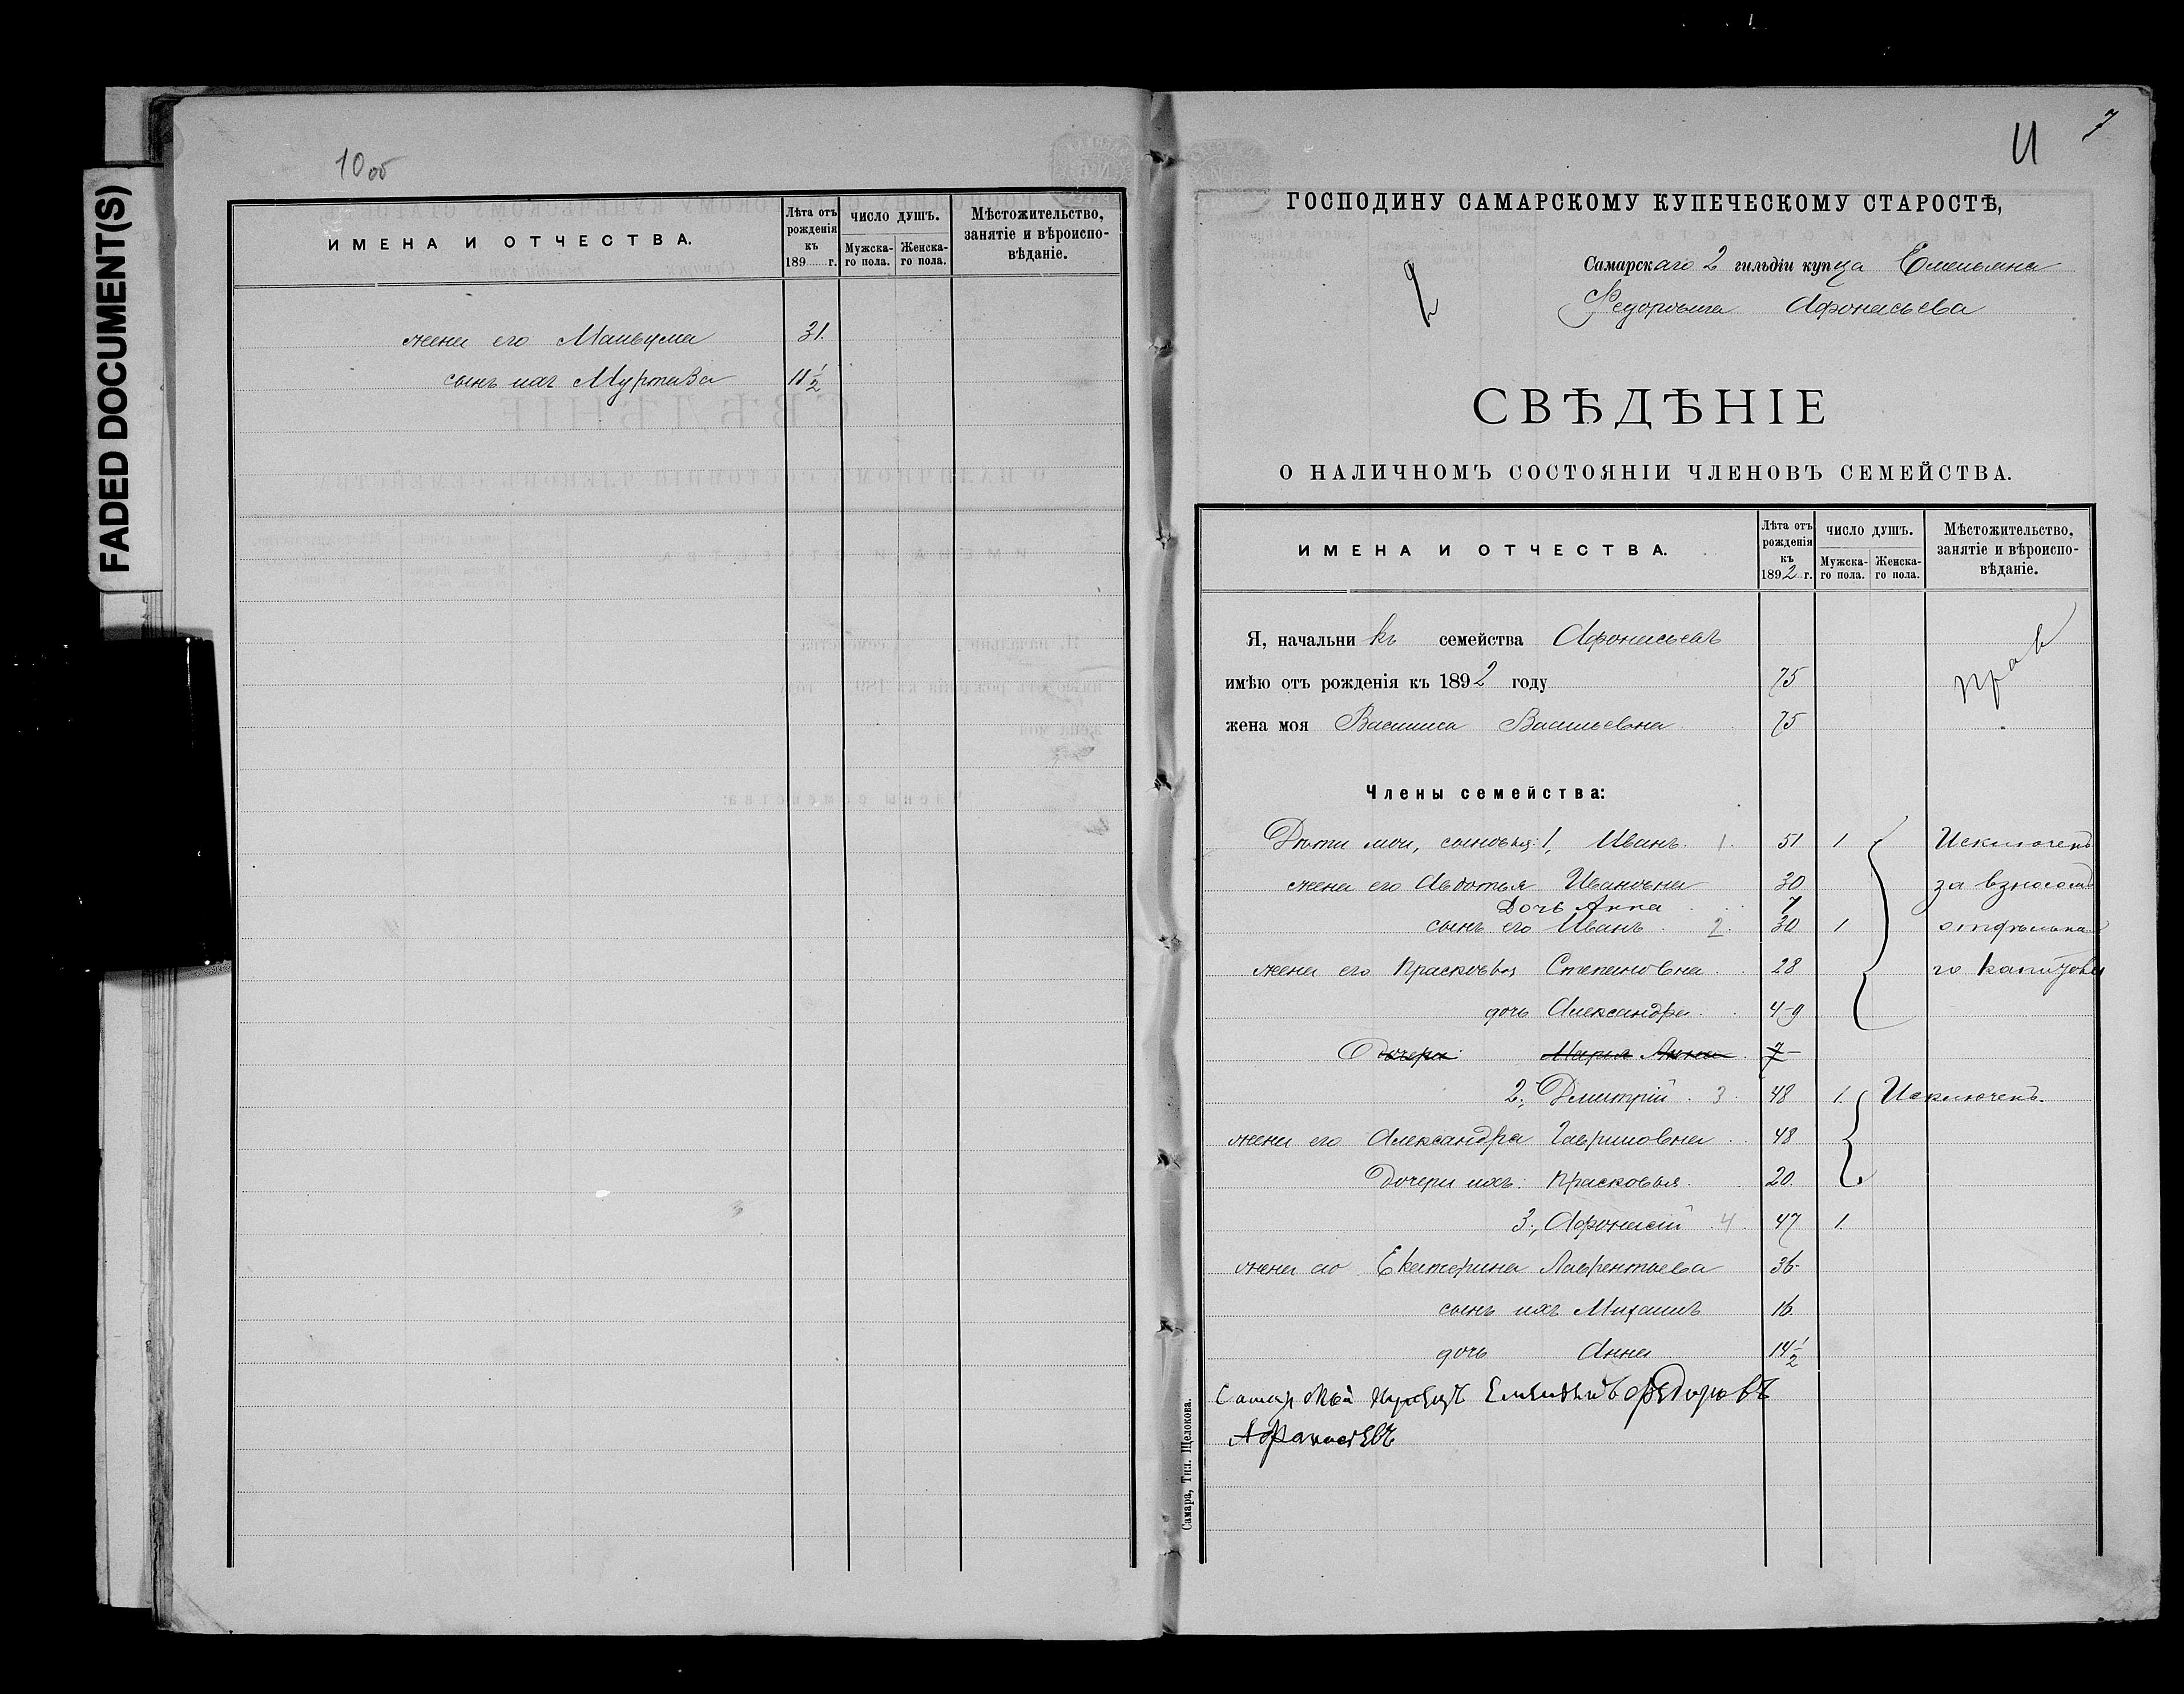 FADED DOCUMENT(S)
10 об
ИМЕНА И ОТЧЕСТВА.
Лѣта отъ рожденія къ 189 г.
ЧИСЛО ДУШЪ.
Мужска-го пола.
Женска-го пола.
Мѣстожительство, занятіе и вѣроиспо-вѣданіе.
жена его 31.
сынъ ихъ Муртаза 11 1/2
7
11
ГОСПОДИНУ САМАРСКОМУ КУПЕЧЕСКОМУ СТАРОСТѢ,
Самарскаго 2 гильдіи купца Емельяна
Федоровича Афонасьева
СВѢДѢНІЕ
О НАЛИЧНОМЪ СОСТОЯНІИ ЧЛЕНОВЪ СЕМЕЙСТВА.
ИМЕНА И ОТЧЕСТВА.
Лѣта отъ рожденія къ 1892 г.
ЧИСЛО ДУШЪ.
Мужска-го пола.
Женска-го пола.
Мѣстожительство, занятіе и вѣроиспо-вѣданіе.
Я, начальникъ семейства Афонасьевъ
имѣю отъ рожденія къ 1892 году 75
прав
жена моя Василиса Васильевна 75
Члены семейства:
Дѣти мои, сыновья: 1, Иванъ. 1. 51 1 Исключенъ
жена его Авдотья Ивановна 30 за взносомъ
Дочь Анна 7
сынъ его Иванъ 2. 30 1 отдѣльна
жена его Прасковья Степановна 28 го капитала
дочь Александра 4-9
Дочери: Марья Анна 7
2., Дмитрій 3. 48 1. Исключенъ.
жена его Александра Гавриловна 48
Дочери ихъ: Прасковья 20.
3., Афонасій 4. 47 1.
жена его Екатерина Лаврентьева 36
сынъ ихъ Михаилъ 16
дочь Анна 14 1/2
Самарской купецъ Емельянъ Федоровъ
Афанасьевъ
Самара, Тип. Щелокова.